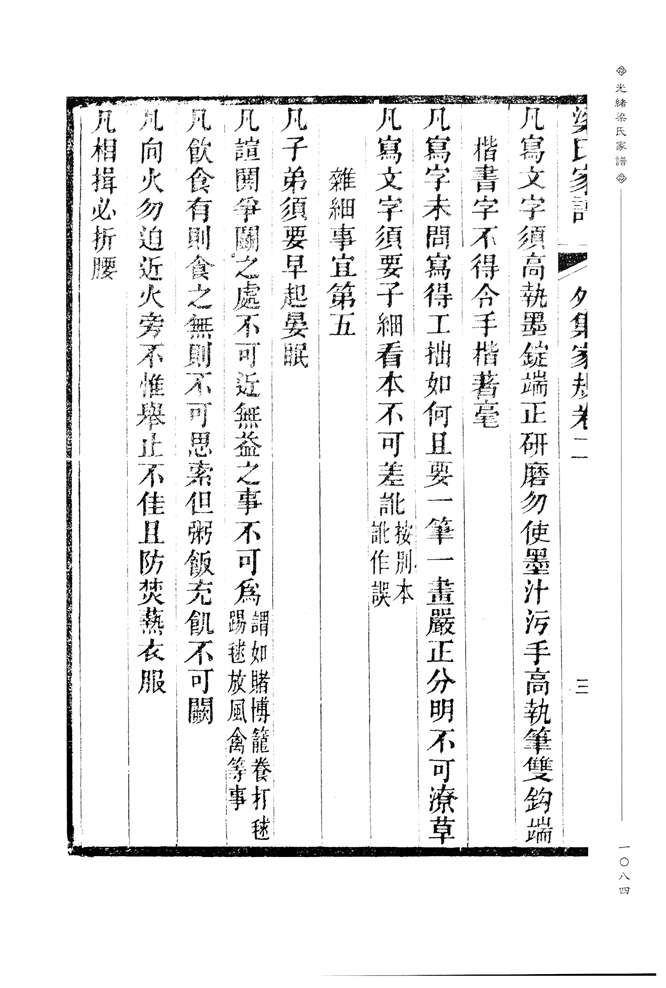 光緒梁氏家譜
一〇八四
梁氏家譜 外集家規卷二 三
凡寫文字須高執墨錠端正研磨勿使墨汁污手高執筆雙鈎端
楷書字不得令手楷著毫
凡寫字未問寫得工拙如何且要一筆一畫嚴正分明不可潦草
凡寫文字須要子細看本不可差訛按別本訛作誤
雜細事宜第五
凡子弟須要早起晏眠
凡諠鬨爭鬭之處不可近無益之事不可爲謂如賭博籠養打毬踢毬放風禽等事
凡飲食有則食之無則不可思索但粥飯充飢不可闕
凡向火勿迫近火旁不惟舉止不佳且防焚爇衣服
凡相揖必折腰